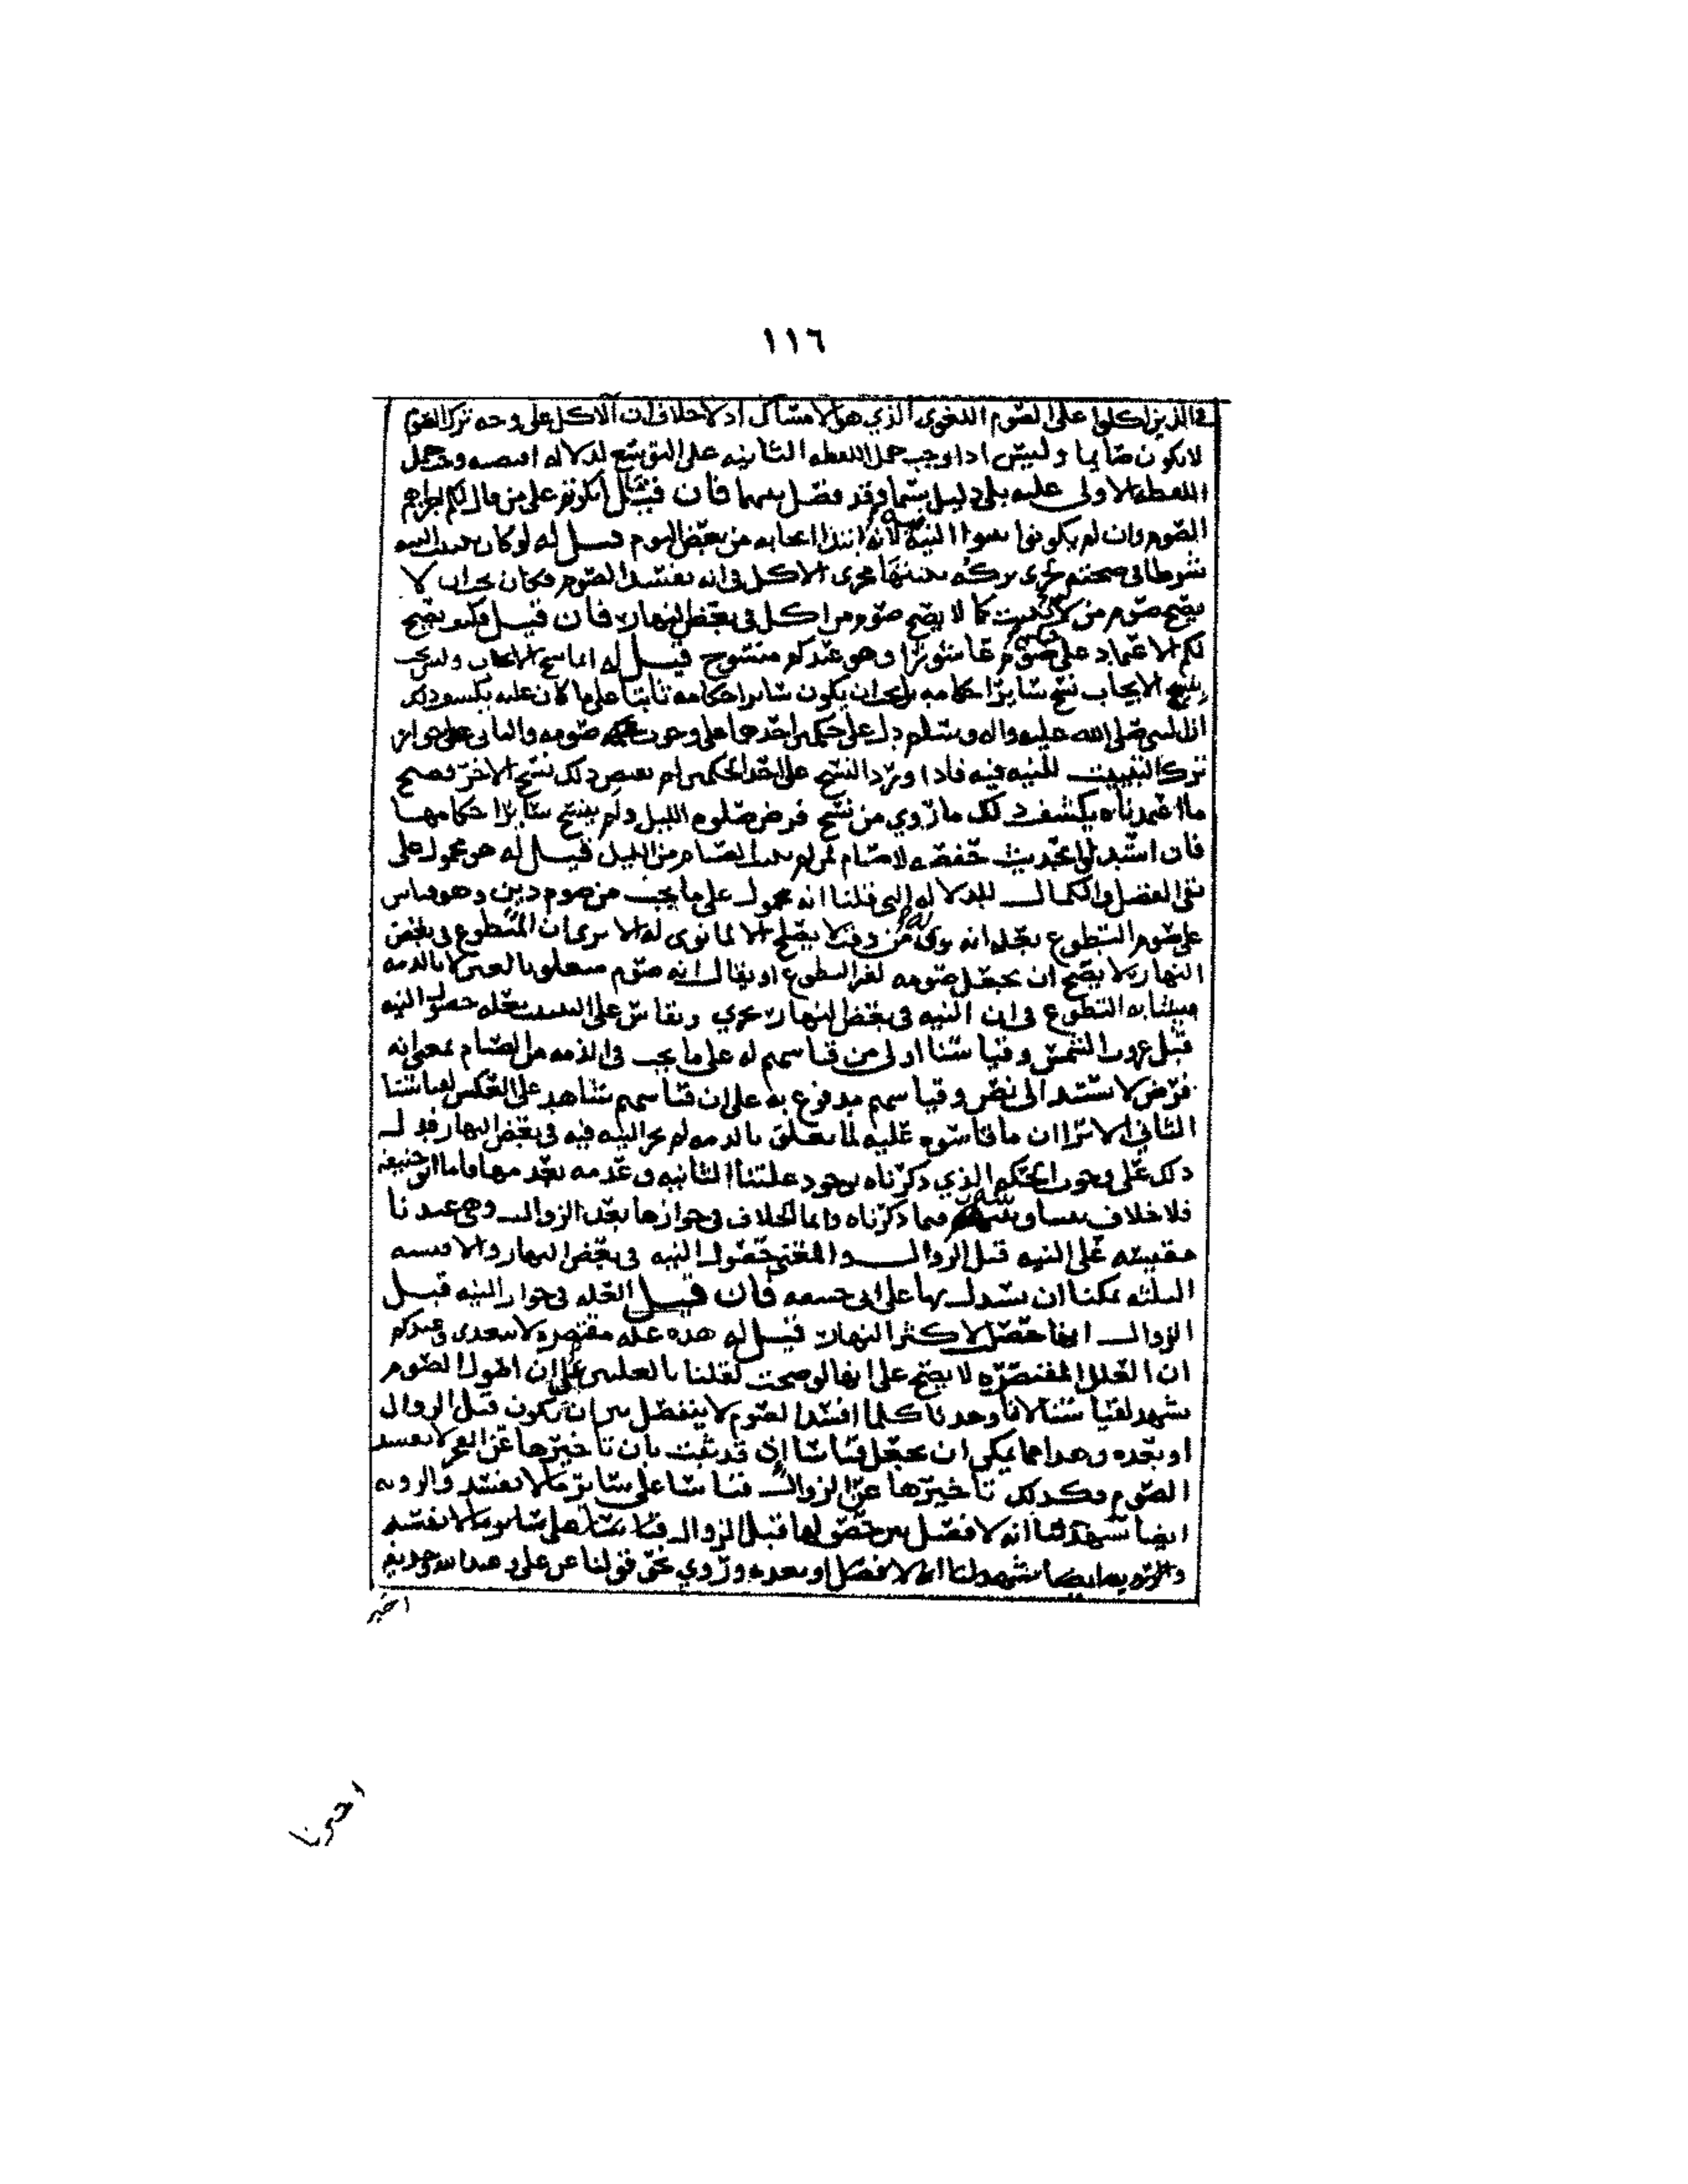 ١١٦
في الذين اكلوا على الصوم اللغوي الذي هو الامساك اذ لا خلاف ان الاكل على وجه ترك الصوم
لا يكون صايما وليس اذا وجب حمل اللفظه الثانيه على التوسع لدلاله اقتضته وجب حمل
اللفظه الاولى عليه بلى دليل سيما وقد فصل بينهما فان قيل انكم على من قال لكم اجزاهم
الصوم وان لم يكونوا نووا النية لانه ابتدا ايجابه من بعض اليوم قيل له لو كان تبييت النيه
شرطا في صحته لجرى تركه مجرى الاكل في انه يفسد الصوم فكان يجب ان لا
يصح صوم من لا يبيت كما لا يصح صوم من اكل في بعض النهار فان قيل فكيف يصح
لكم الاعتماد على صوم عاشورا وهو عندكم منسوخ قيل له انما نسخ الايجاب وليس يجب
بنسخ الايجاب نسخ ساير احكامه بل يجب ان يكون ساير احكامه ثابتا على ما كان عليه يكشف ذلك
ان النبي صلى الله عليه واله وسلم دل على حكمين احدهما على وجوب صومه والثاني على جواز
ترك التبييت للنيه فيه فاذا ورد النسخ على احد الحكمين لم يقتض ذلك نسخ الاخر وصح
ما اعتمدناه يكشف ذلك ما روي من نسخ فرض صلوه الليل ولم ينسخ ساير احكامها
فان استدلوا بحديث حفصه لا صيام لمن لم يبيت الصيام من الليل قيل له هو محمول على
نفي الفضل والكمال للدلاله التي قلنا انه محمول على ما يجب من صوم دين وهو قياس
على صوم التطوع بعله انه نوى من وقت لا يصلح الا لما نوى له الا ترى ان المتطوع في بعض
النهار لا يصح ان يجعل صومه لغير التطوع او يقال انه صوم متعلق بالعين لا بالذمه
ومثابه التطوع في ان النيه في بعض النهار يجزي ويقاس على التبييت بعله حصول النيه
قبل غروب الشمس وقياسنا اولى من قياسهم له على ما يجب في الذمه من الصيام بمعنى انه
فرض لاستند الى نص وقياسهم مدفوع به على ان قياسهم شاهد على العكس لقياسنا
الثاني الا ترا ان ما قاسوه عليه لما تعلق بالذمه لم يجز النيه فيه في بعض النهار فدل
ذلك على وجوب الحكم الذي ذكرناه بوجود علتنا الثانيه وعدمه بعدمها فاما ابو حنيفه
فلا خلاف بيننا وبينه فيما ذكرناه وانما الخلاف في جوازها بعد الزوال وهي عندنا
مقيسه على النيه قبل الزوال والمعنى حصول النيه في بعض النهار والاقيسه
الثلثه يمكننا ان نستدل بها على ابي حنيفه فان قيل العله في جواز النيه قبل
الزوال انها حصلت لاكثر النهار قيل له هذه عله مقتصره لا تتعدى وعندكم
ان العلل المقتصره لا يصح على انها لو صحت لقلنا بالعلتين على ان اصول الصوم
تشهد لقياسنا لانا وجدنا كلما افسد الصوم لا ينفصل بين ان تكون قبل الزوال
او بعده وهذا مما يمكن ان يجعل قياسا اذ قد ثبت بان تاخيرها عن الفجر لا يفسد
الصوم فكذلك تاخيرها عن الزوال قياسا على ساير ما لا يفسد والرويه
ايضا تشهد لنا انه لا فصل بين حصولها قبل الزوال قياسا على ساير ما لا يفسد
والرويه ايضا تشهد لنا انه لا فصل او بعده وروي نحو قولنا عن علي وعبد الله وحذيفه
اخبر
اخبرنا